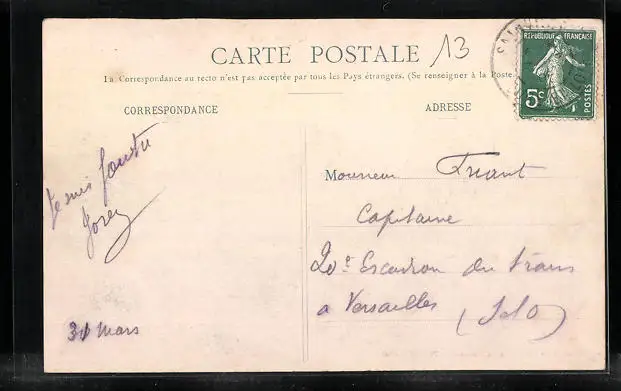 CARTE POSTALE
13
La Correspondance au recto n'est pas acceptée par tous les Pays étrangers. (Se renseigner à la Poste.
REPUBLIQUE FRANÇAISE
5c
POSTES
CORRESPONDANCE
ADRESSE
Monsieur Friant
Capitaine
20e Escadron du train
a Versailles (S&O)
31 Mars